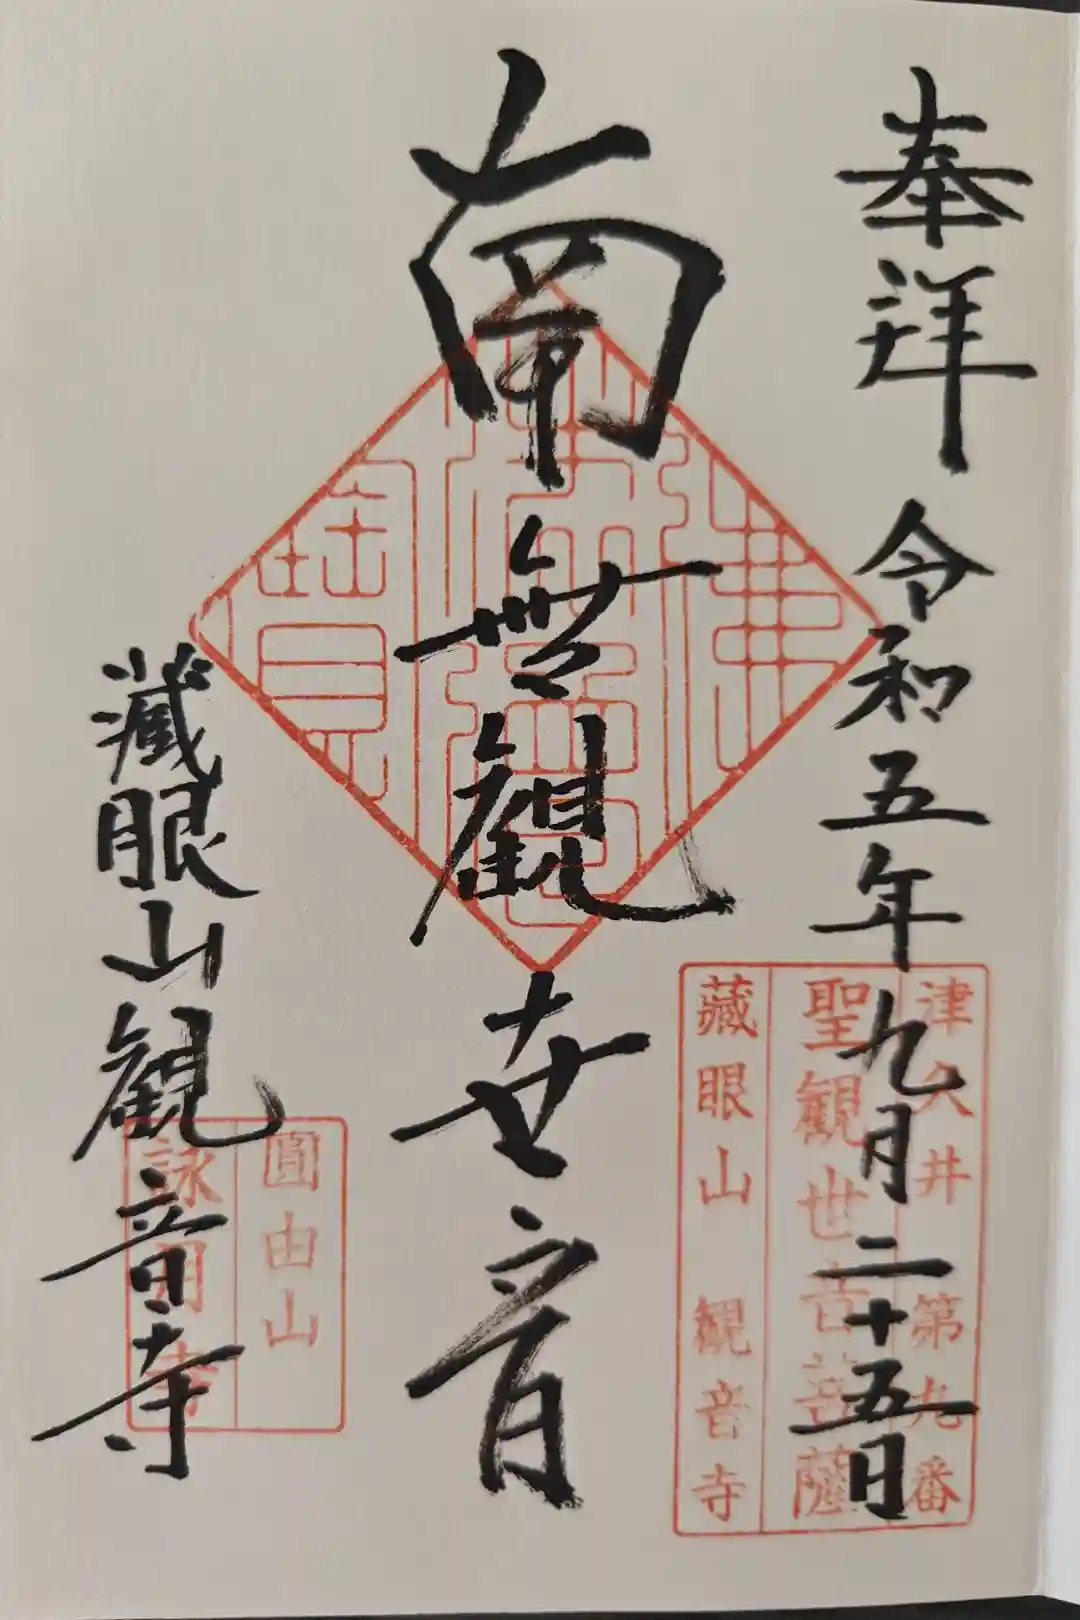 奉拝
令和五年九月二十五日
津久井第九番
聖観世音菩薩
藏眼山 観音寺
南無観世音
佛法僧寳
藏眼山観音寺
圓由山
詠月寺